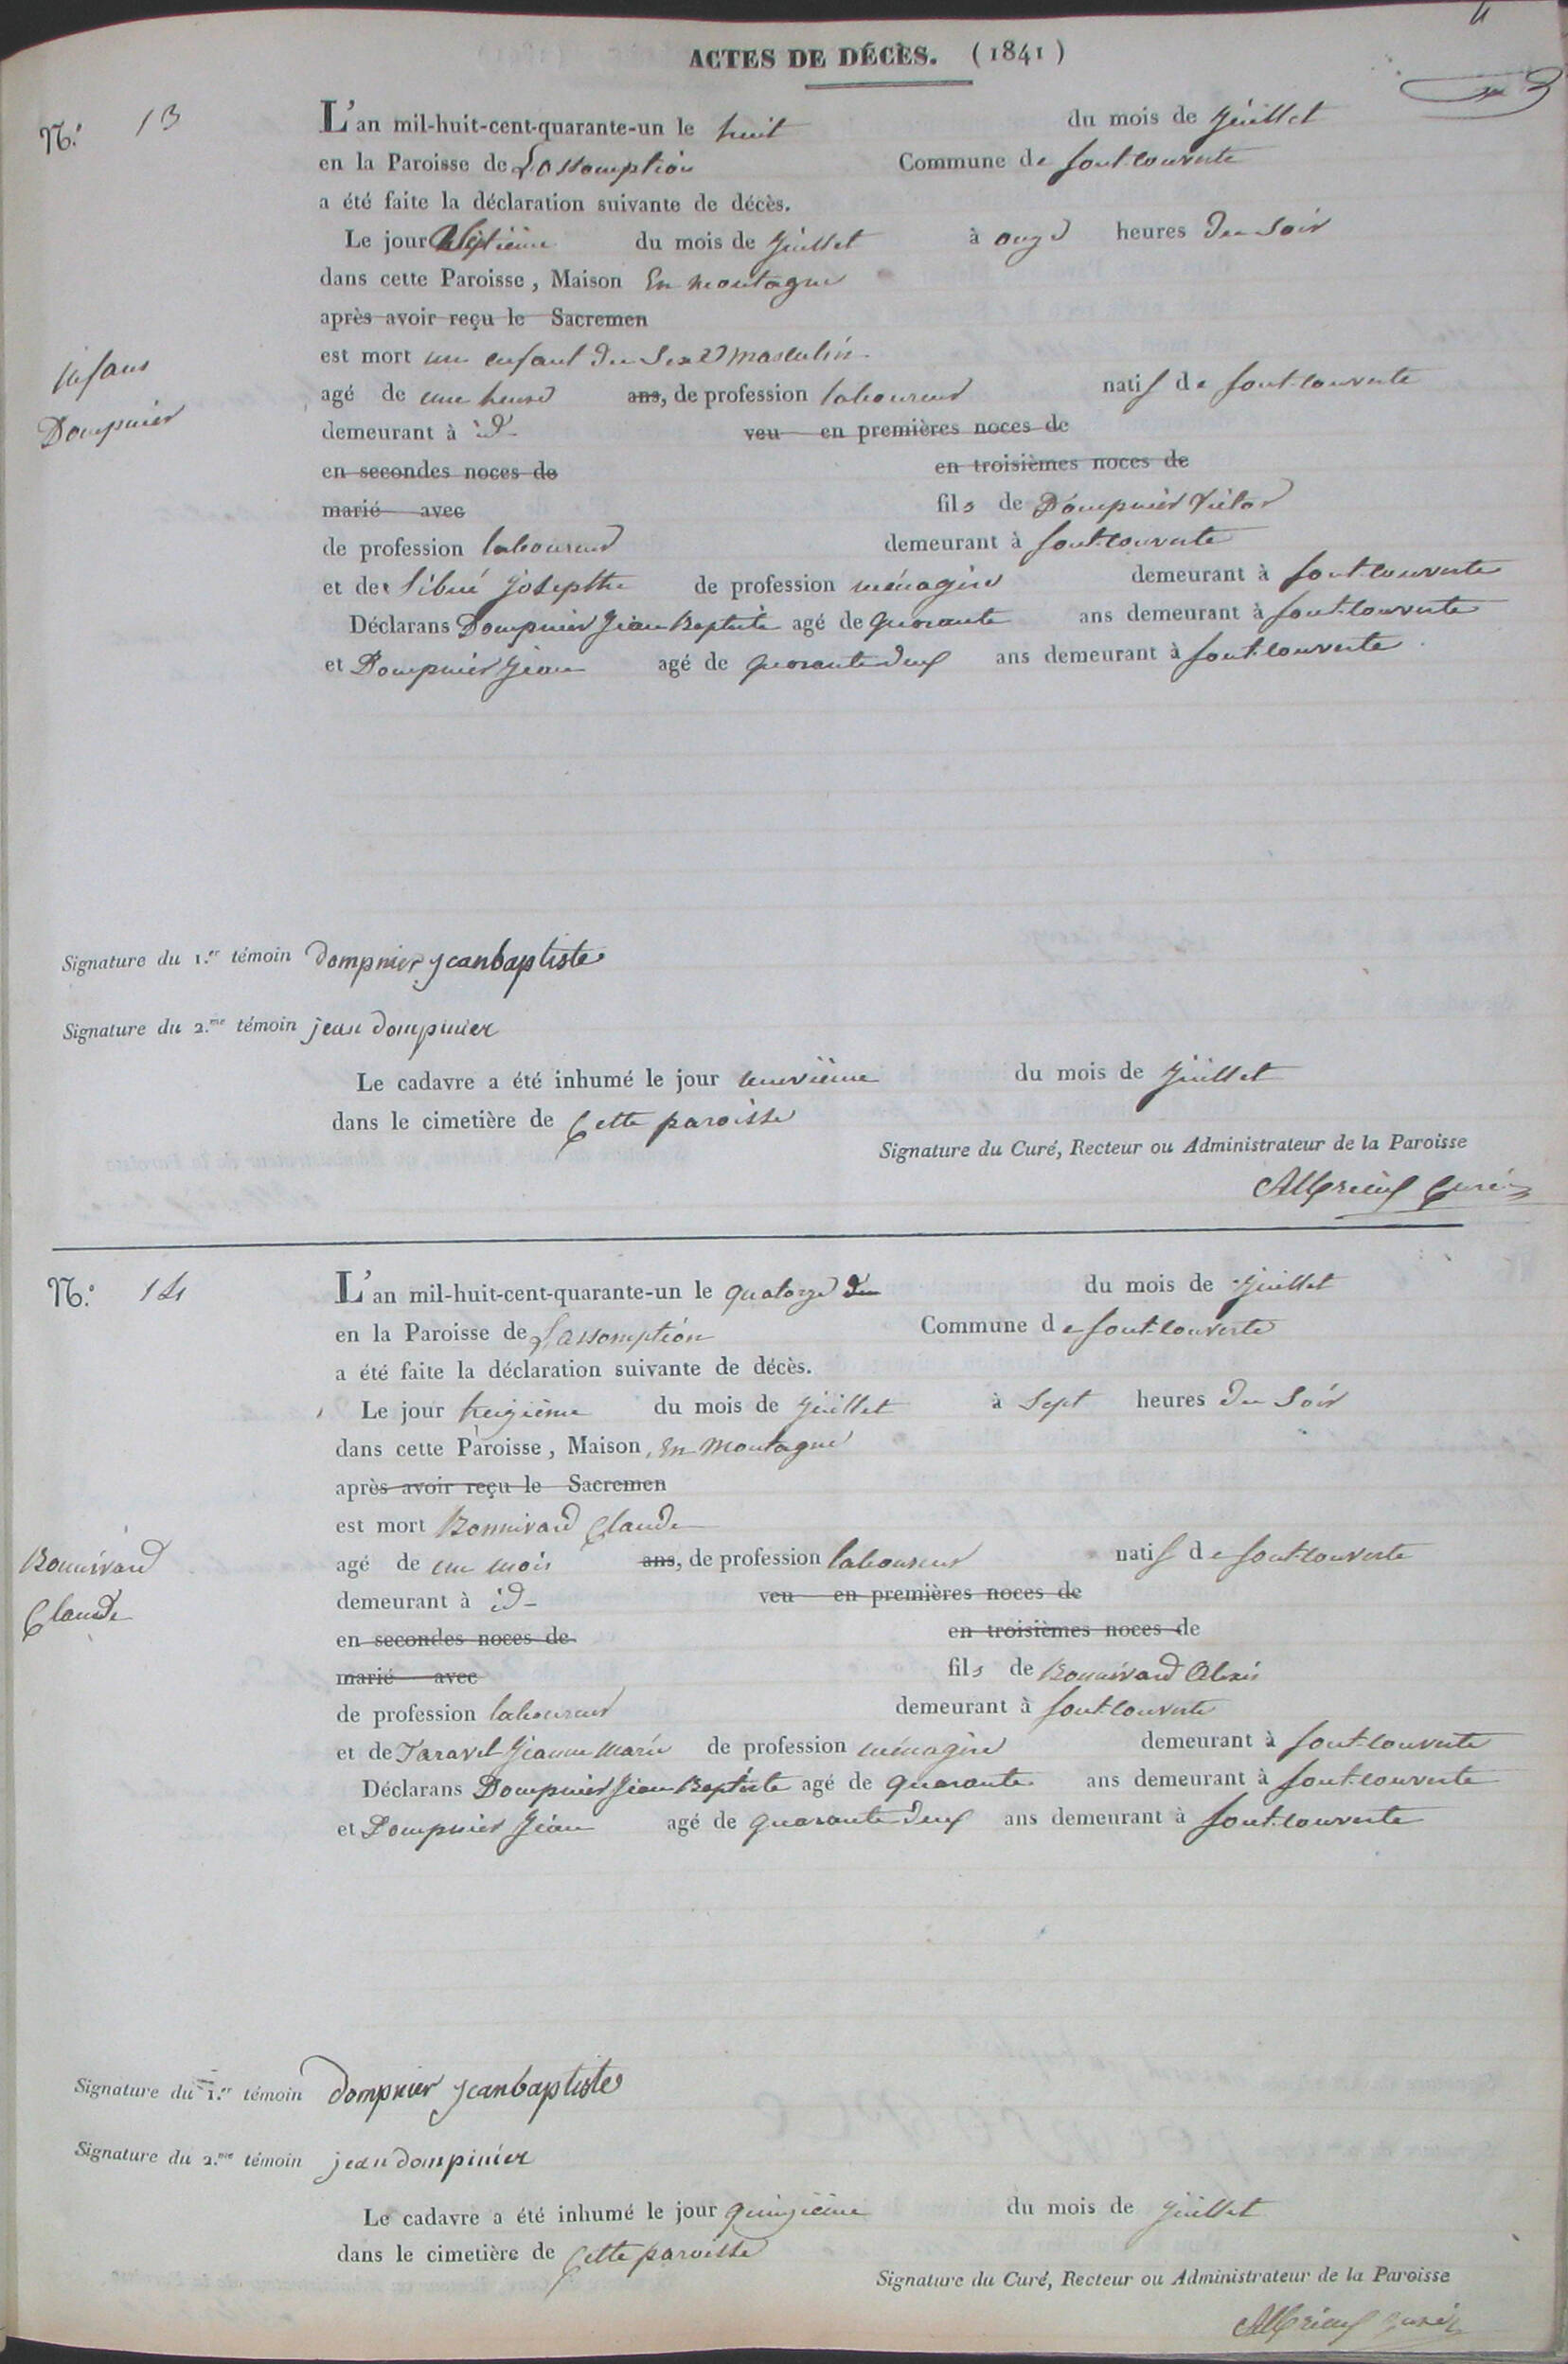 ACTES DE DÉCÈS. (1841)
N.º 13
L'an mil-huit-cent-quarante-un le huit du mois de Juillet
en la Paroisse de L'assomption Commune de font-couverte
a été faite la déclaration suivante de décès.
Le jour septième du mois de Juillet à onze heures du Soir
dans cette Paroisse, Maison En montagne
après avoir reçu le Sacremen
est mort un enfant du Sexe masculin
infans
Dompnier
agé de une heure ans, de profession laboureur natif de font-couverte
demeurant à id- veu en premières noces de
en secondes noces de en troisièmes noces de
marié avec fils de Dompnier Victor
de profession laboureur demeurant à font-couverte
et de Josepthe de profession ménagère demeurant à font-couverte
Déclarans Dompnier Jean Baptiste agé de quarante ans demeurant à font-couverte
et Dompnier Jean agé de quarante deux ans demeurant à font-couverte
Signature du 1.er témoin dompnier jeanbaptiste
Signature du 2.me témoin jean dompinier
Le cadavre a été inhumé le jour neuvième du mois de Juillet
dans le cimetière de Cette paroisse
Signature du Curé, Recteur ou Administrateur de la Paroisse
curé
N.º 14
L'an mil-huit-cent-quarante-un le quatorze du du mois de Juillet
en la Paroisse de L'assomption Commune de font-couverte
a été faite la déclaration suivante de décès.
Le jour treizième du mois de Juillet à Sept heures du Soir
dans cette Paroisse, Maison, En Montagne
après avoir reçu le Sacremen
est mort Bonnivard Claude
Bonnivard
Claude
agé de un mois ans, de profession laboureur natif de font-couverte
demeurant à id- veu en premières noces de
en secondes noces de en troisièmes noces de
marié avec fils de Bonnivard Alexis
de profession laboureur demeurant à font-couverte
et de Taravel Jeanne Marie de profession ménagère demeurant à font-couverte
Déclarans Dompnier Jean Baptiste agé de quarante ans demeurant à font-couverte
et Dompnier Jean agé de quarante deux ans demeurant à font-couverte
Signature du 1.er témoin dompnier jeanbaptiste
Signature du 2.me témoin jean dompinier
Le cadavre a été inhumé le jour quinzième du mois de Juillet
dans le cimetière de Cette paroisse
Signature du Curé, Recteur ou Administrateur de la Paroisse
curé